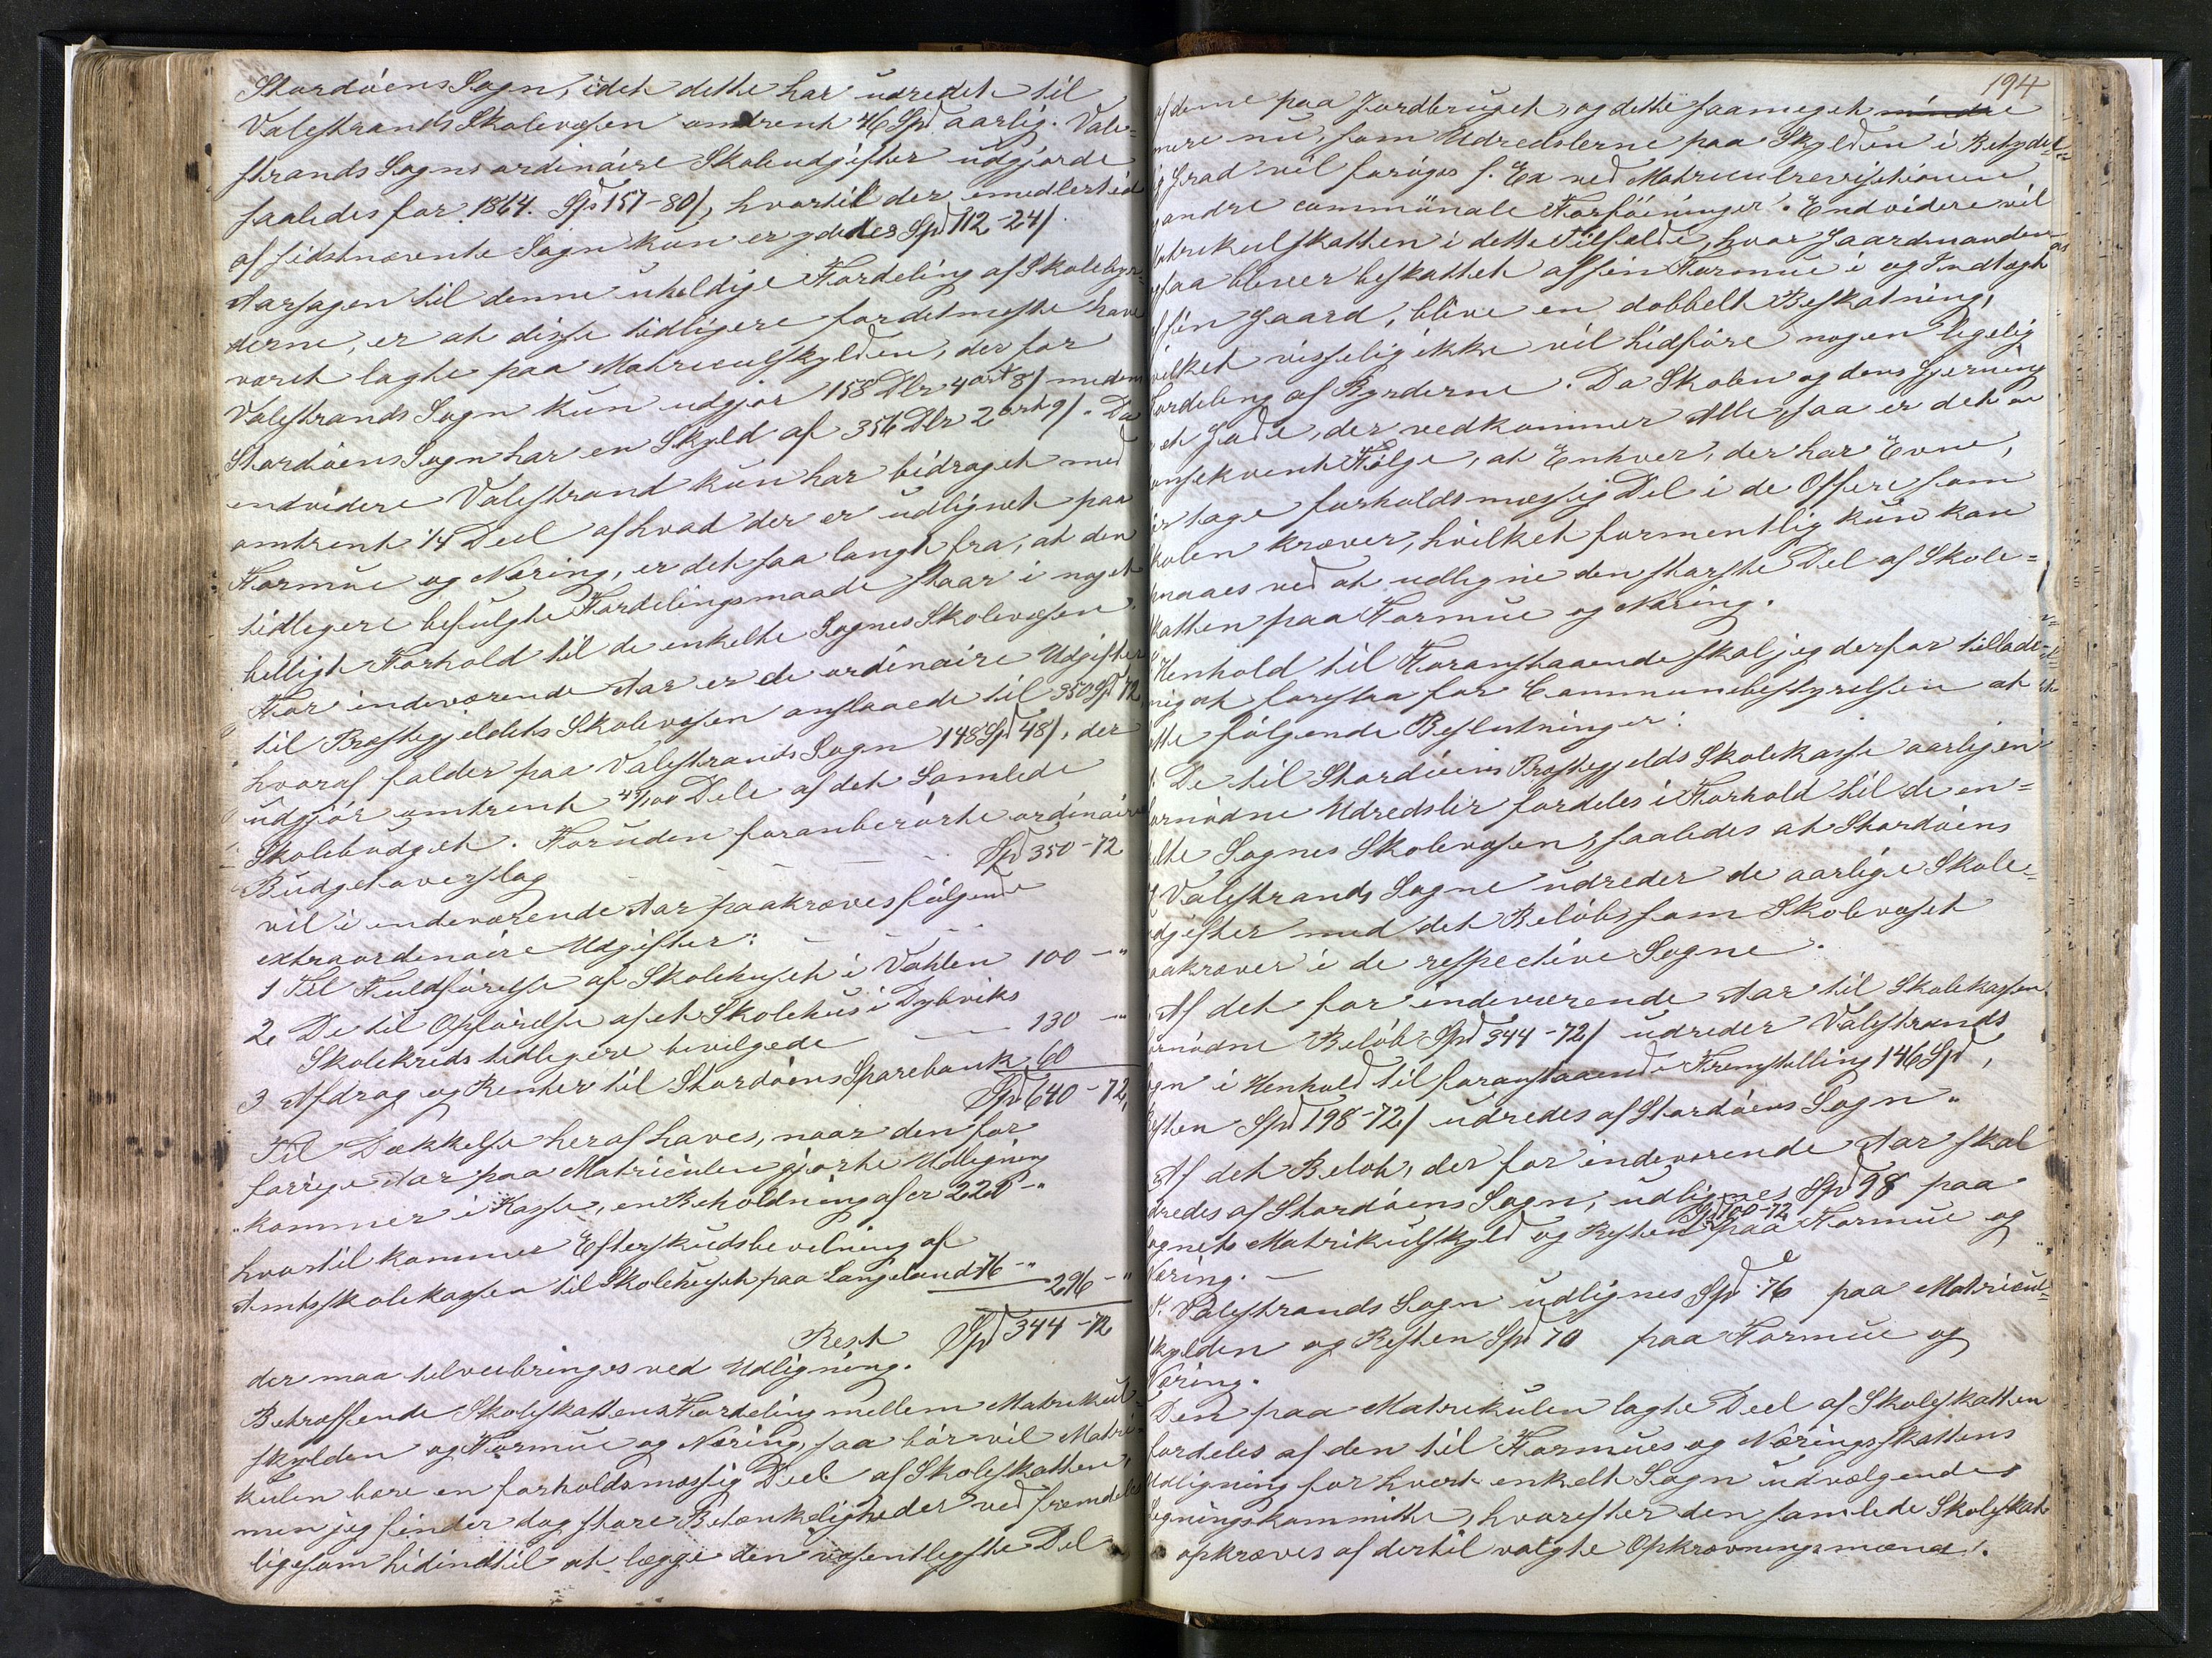 Stordöens Sogn, idet dette har udredet til
Valestrands Skolevæsen omtrent 46 Spd aarlig. Vale-
strands Sogns ordinaire Skoleudgifter udgjorde
saaledes for 1864. Spd 157-80/, hvortil der imidlertid
af sidstnævnte Sogn kun erydedes Spd 112-24/.
Aarsagen til denne uheldige Fordeling af Skolebyr-
derne, er at disse tidligere fordetmeste have
været lagte paa Matriculskylden, der for
Valestrands Sogn kun udgjør 158 Dlr 4 ort 8/ medens
Stordöens Sogn har en Skyld af 356 Dlr 2 ort 9/. Da
endvidere Valestrand kun har bidraget med
omtrent 1/4 Deel af hvad der er udlignet paa
Formue og Næring, er det saa langt fra, at den
tidligere befulgte Fordelingsmaade staar i noget
billigt Forhold til de enkelte Sognes Skolevæsen.
For indeværende Aar er de ordinaire Udgifter
til Præstegjeldets Skolevæsen anslaaede til 350 Spd 72,
hvoraf falder paa Valestrands Sogn 148 Spd 48/, der
udgjør omtrent 42/100 Dele af det Samlede
Skolebudget. Foruden foranberørte ordinaire
Budgetoverslag - - - Spd 350-72
vil i indeværende Aar paakræves følgende
extraordinaire Udgifter:
1 Til Fuldførelse af Skolehuset i Vahlen 100 - "
2, De til Opførelse af et Skolehus i Dybviks
Skolekreds tidligere bevilgede - 130 - "
3 Afdrag og Renter til Stordöens Sparebank 60
Spd 640-72,
Til Dækkelse heraf haves, naar den for
forrige Aar paa Matriculen gjorte Udligning
kommer i Kasse, en Beholdning af cr 220 - "
hvortil kommer Efterskudsbevilning af
Amtsskolekassen til Skolehuset paa Langeland 76 - "
296 - "
Rest Spd 344-72
der maa tilveiebringes ved Udligning.
Betræffende Skoleskattens Fordeling mellem Matrikul-
skylden og Formue og Næring, saa bør vel Matri-
kulen bære en forholdsmæssig Deel af Skoleskatten,
men jeg finder dog store Betænkeligheder ved fremdeles
ligesom hidindtil at lægge den væsentligste Del
194
af denne paa Jordbruget, og dette saameget mindre
mere nu, som Udredslerne paa Skylden i Betyde-
ig Grad vil forøges f. Ex ved Matriculrevisionen
andre communale Forføininger. Endvidere vil
Matrikulskatten i dette Tilfælde, hvor Gaardmanden
gsaa bliver beskattet af sin Formue i og Indtægt
f sin Gaard, blive en dobbelt Beskatning,
vilket visselig ikke vil hidføre nogen ligelig
ordeling af Byrderne. Da Skolen og dens Gjerning
et Gode, der vedkommer Alle, saa er det en
onsekvent Følge, at Enhver, der har Evne,
ør tage forholdsmæssig Del i de Offere som
kolen kræver, hvilket formentlig kun kan
pnaaes ved at udligne den største Del af Skole-
katten paa Formue og Næring.
Henhold til Foranstaaende skal jeg derfor tillade
mig at foreslaa for Communebestyrelsen at
atte følgende Beslutninger:
De til Stordöens Præstegjelds Skolekasse aarligen
ornødne Udredsler fordeles i Forhold til de en-
elte Sognes Skolevæsen, saaledes at Stordöens
Valestrands Sogne udreder de aarlige Skole-
dgifter med det Beløb, som Skolevæset
aakræver i de respective Sogne.
Af det for indeværende Aar til Skolekassen
ornødne Beløb Spd 344-72/ udreder Valestrands
ogn i Henhold til foranstaaende Fremstilling 146 Spd,
esten Spd 198-72/ udredes af Stordöens Sogn.
Af det Beløb, der for indeværende Aar skal
dredes af Stordöens Sogn, udlignes Spd 98 paa
ognets Matrikulskyld og Resten Spd 100-72 paa Formue og
Næring. -
Valestrands Sogn udlignes Spd 76 paa Matricul-
kylden og Resten Spd 70 paa Formue og
Næring.
Den paa Matrikulen lagte Deel af Skoleskatten
fordeles af den til Formues og Næringsskattens
Udligning for hvert enkelt Sogn udvælgendes
igningskommitte, hvorefter den samlede Skoleskat
opkræves af dertil valgte Opkrævningsmænd.